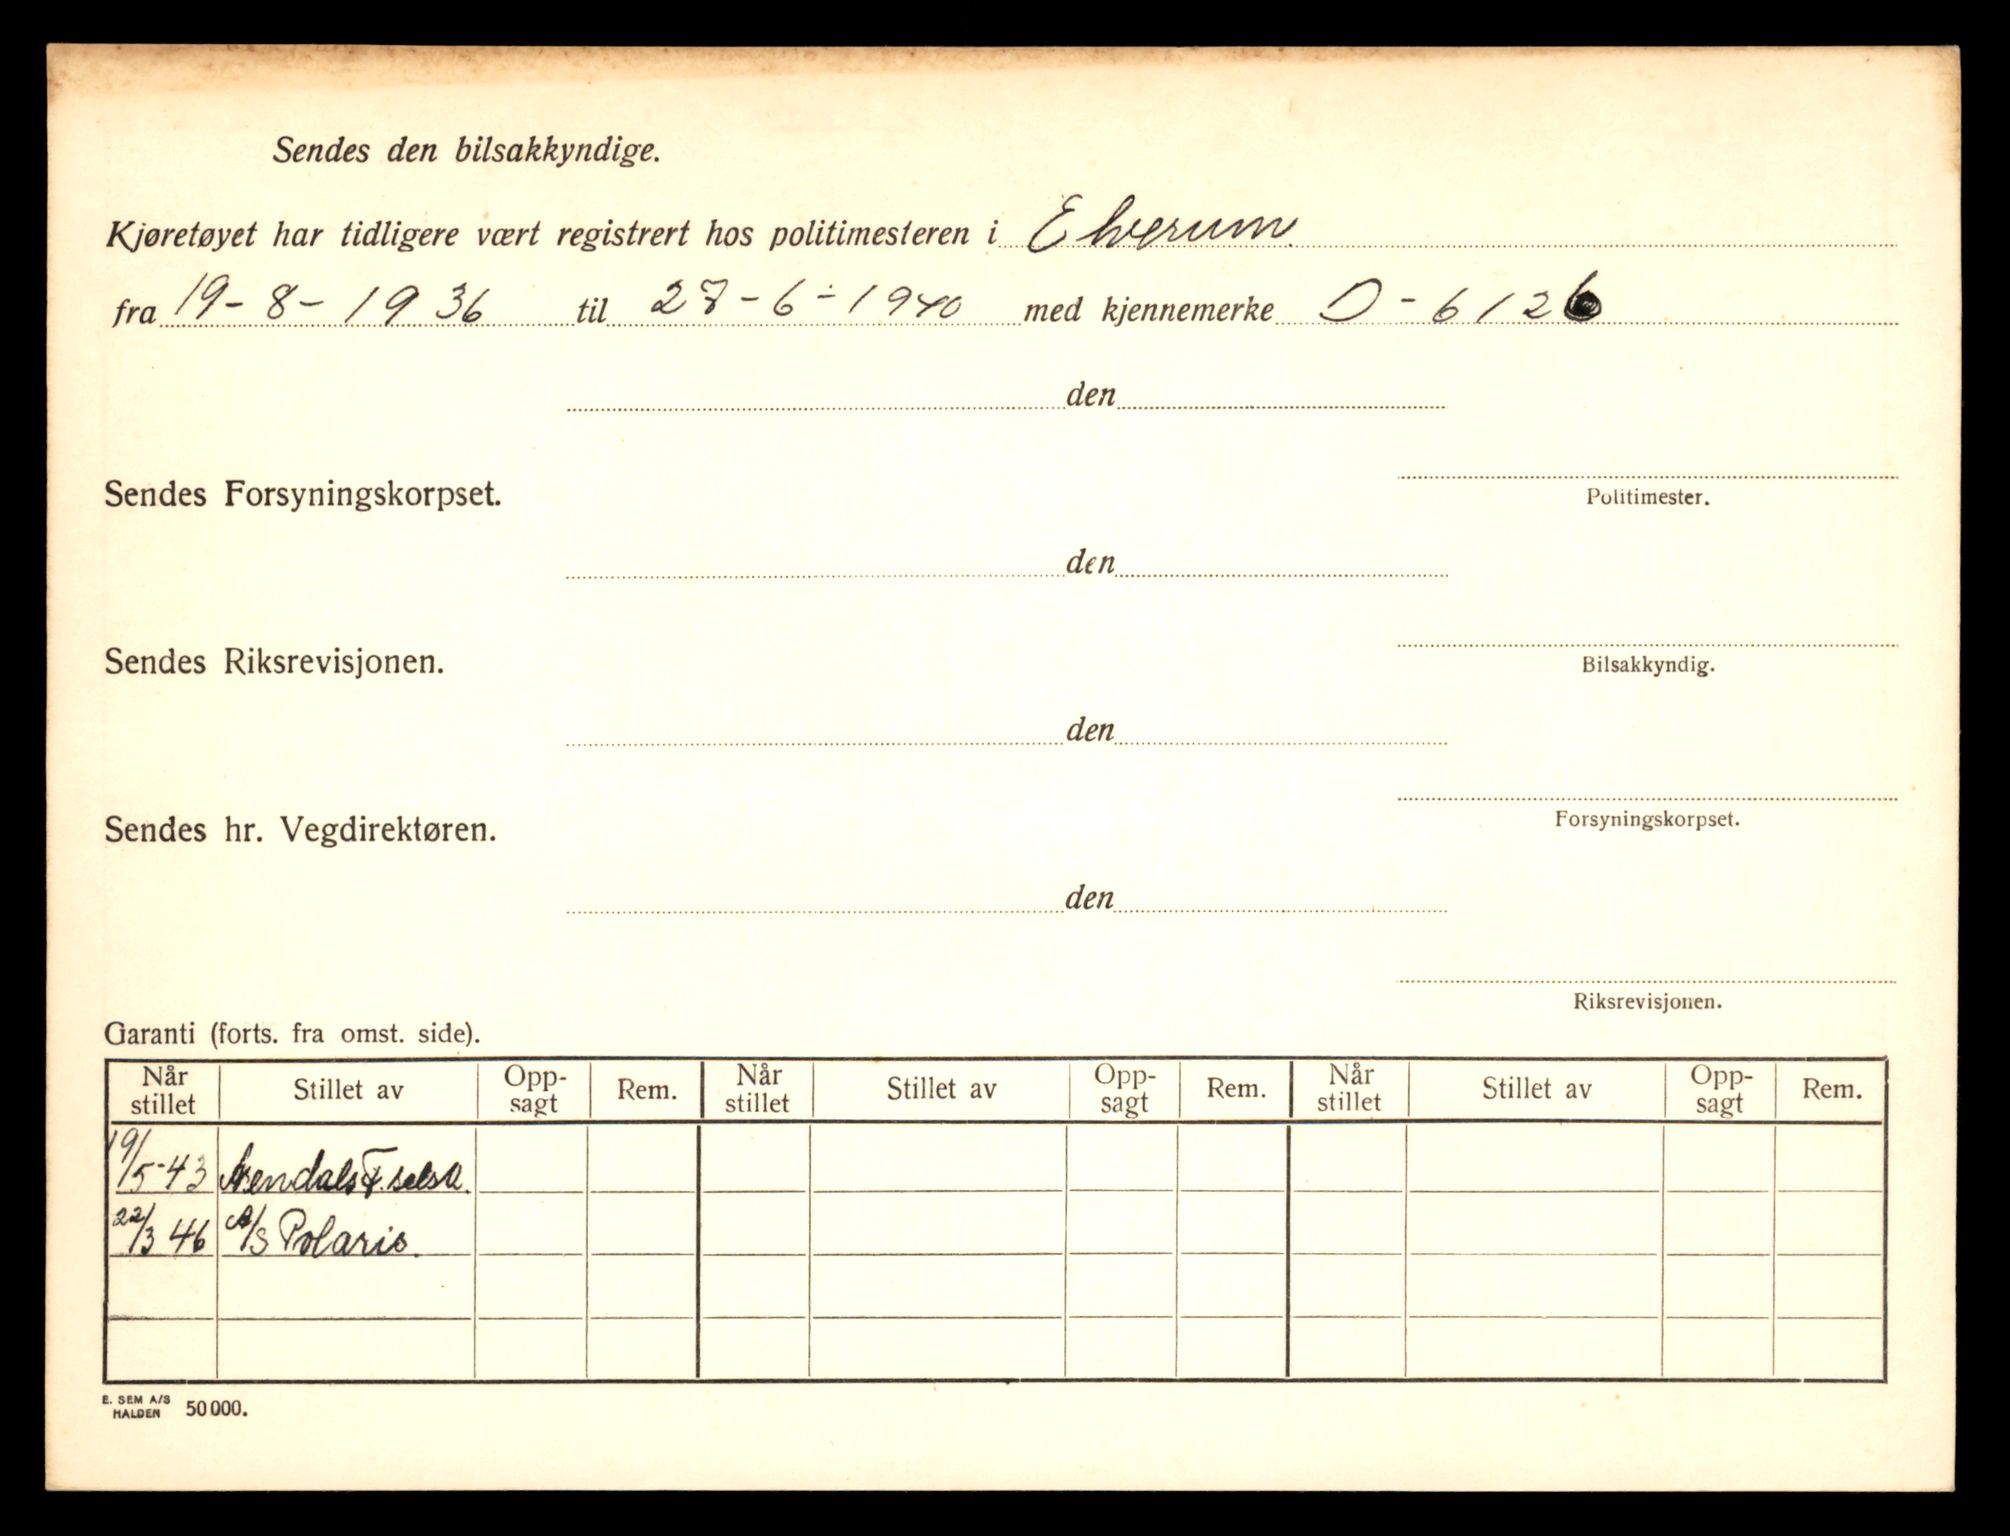 Sendes den bilsakkyndige.
Kjøretøyet har tidligere vært registrert hos politimesteren i Elverum.
fra 19-8-1936 til 27-6-1940 med kjennemerke D-6126
den
Politimester.
Sendes Forsyningskorpset.
den
Bilsakkyndig.
Sendes Riksrevisjonen.
den
Forsyningskorpset.
Sendes hr. Vegdirektøren.
den
Riksrevisjonen.
Garanti (forts. fra omst. side).
Når stillet Stillet av Opp-sagt Rem. Når stillet Stillet av Opp-sagt Rem. Når stillet Stillet av Opp-sagt Rem.
19/5-43 Arendals F. selsk.
22/3 46 A/S Polaris.
E. SEM A/S
HALDEN 50000.